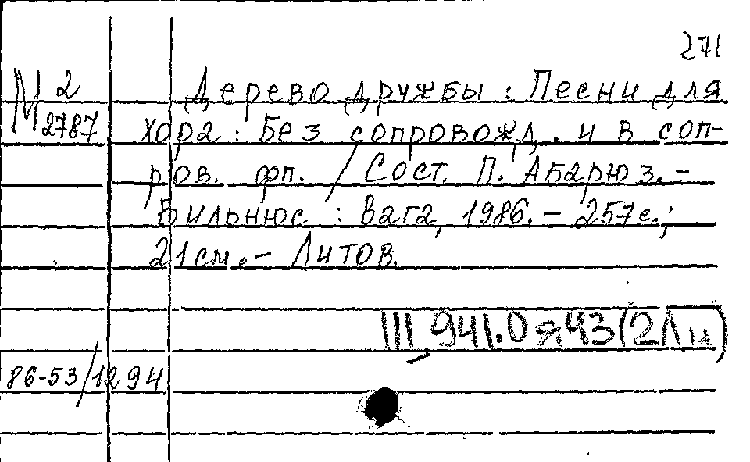 271
М 2
2787
Дерево дружбы : Песни для
хора : Без сопровожд. и в соп-
ров. фп. / Сост. П. Абарюз. -
Вильнюс : Вага, 1986. - 257 с.;
21 см. - Литов.
III 941.0 я43(2Ли)
86-53/1294